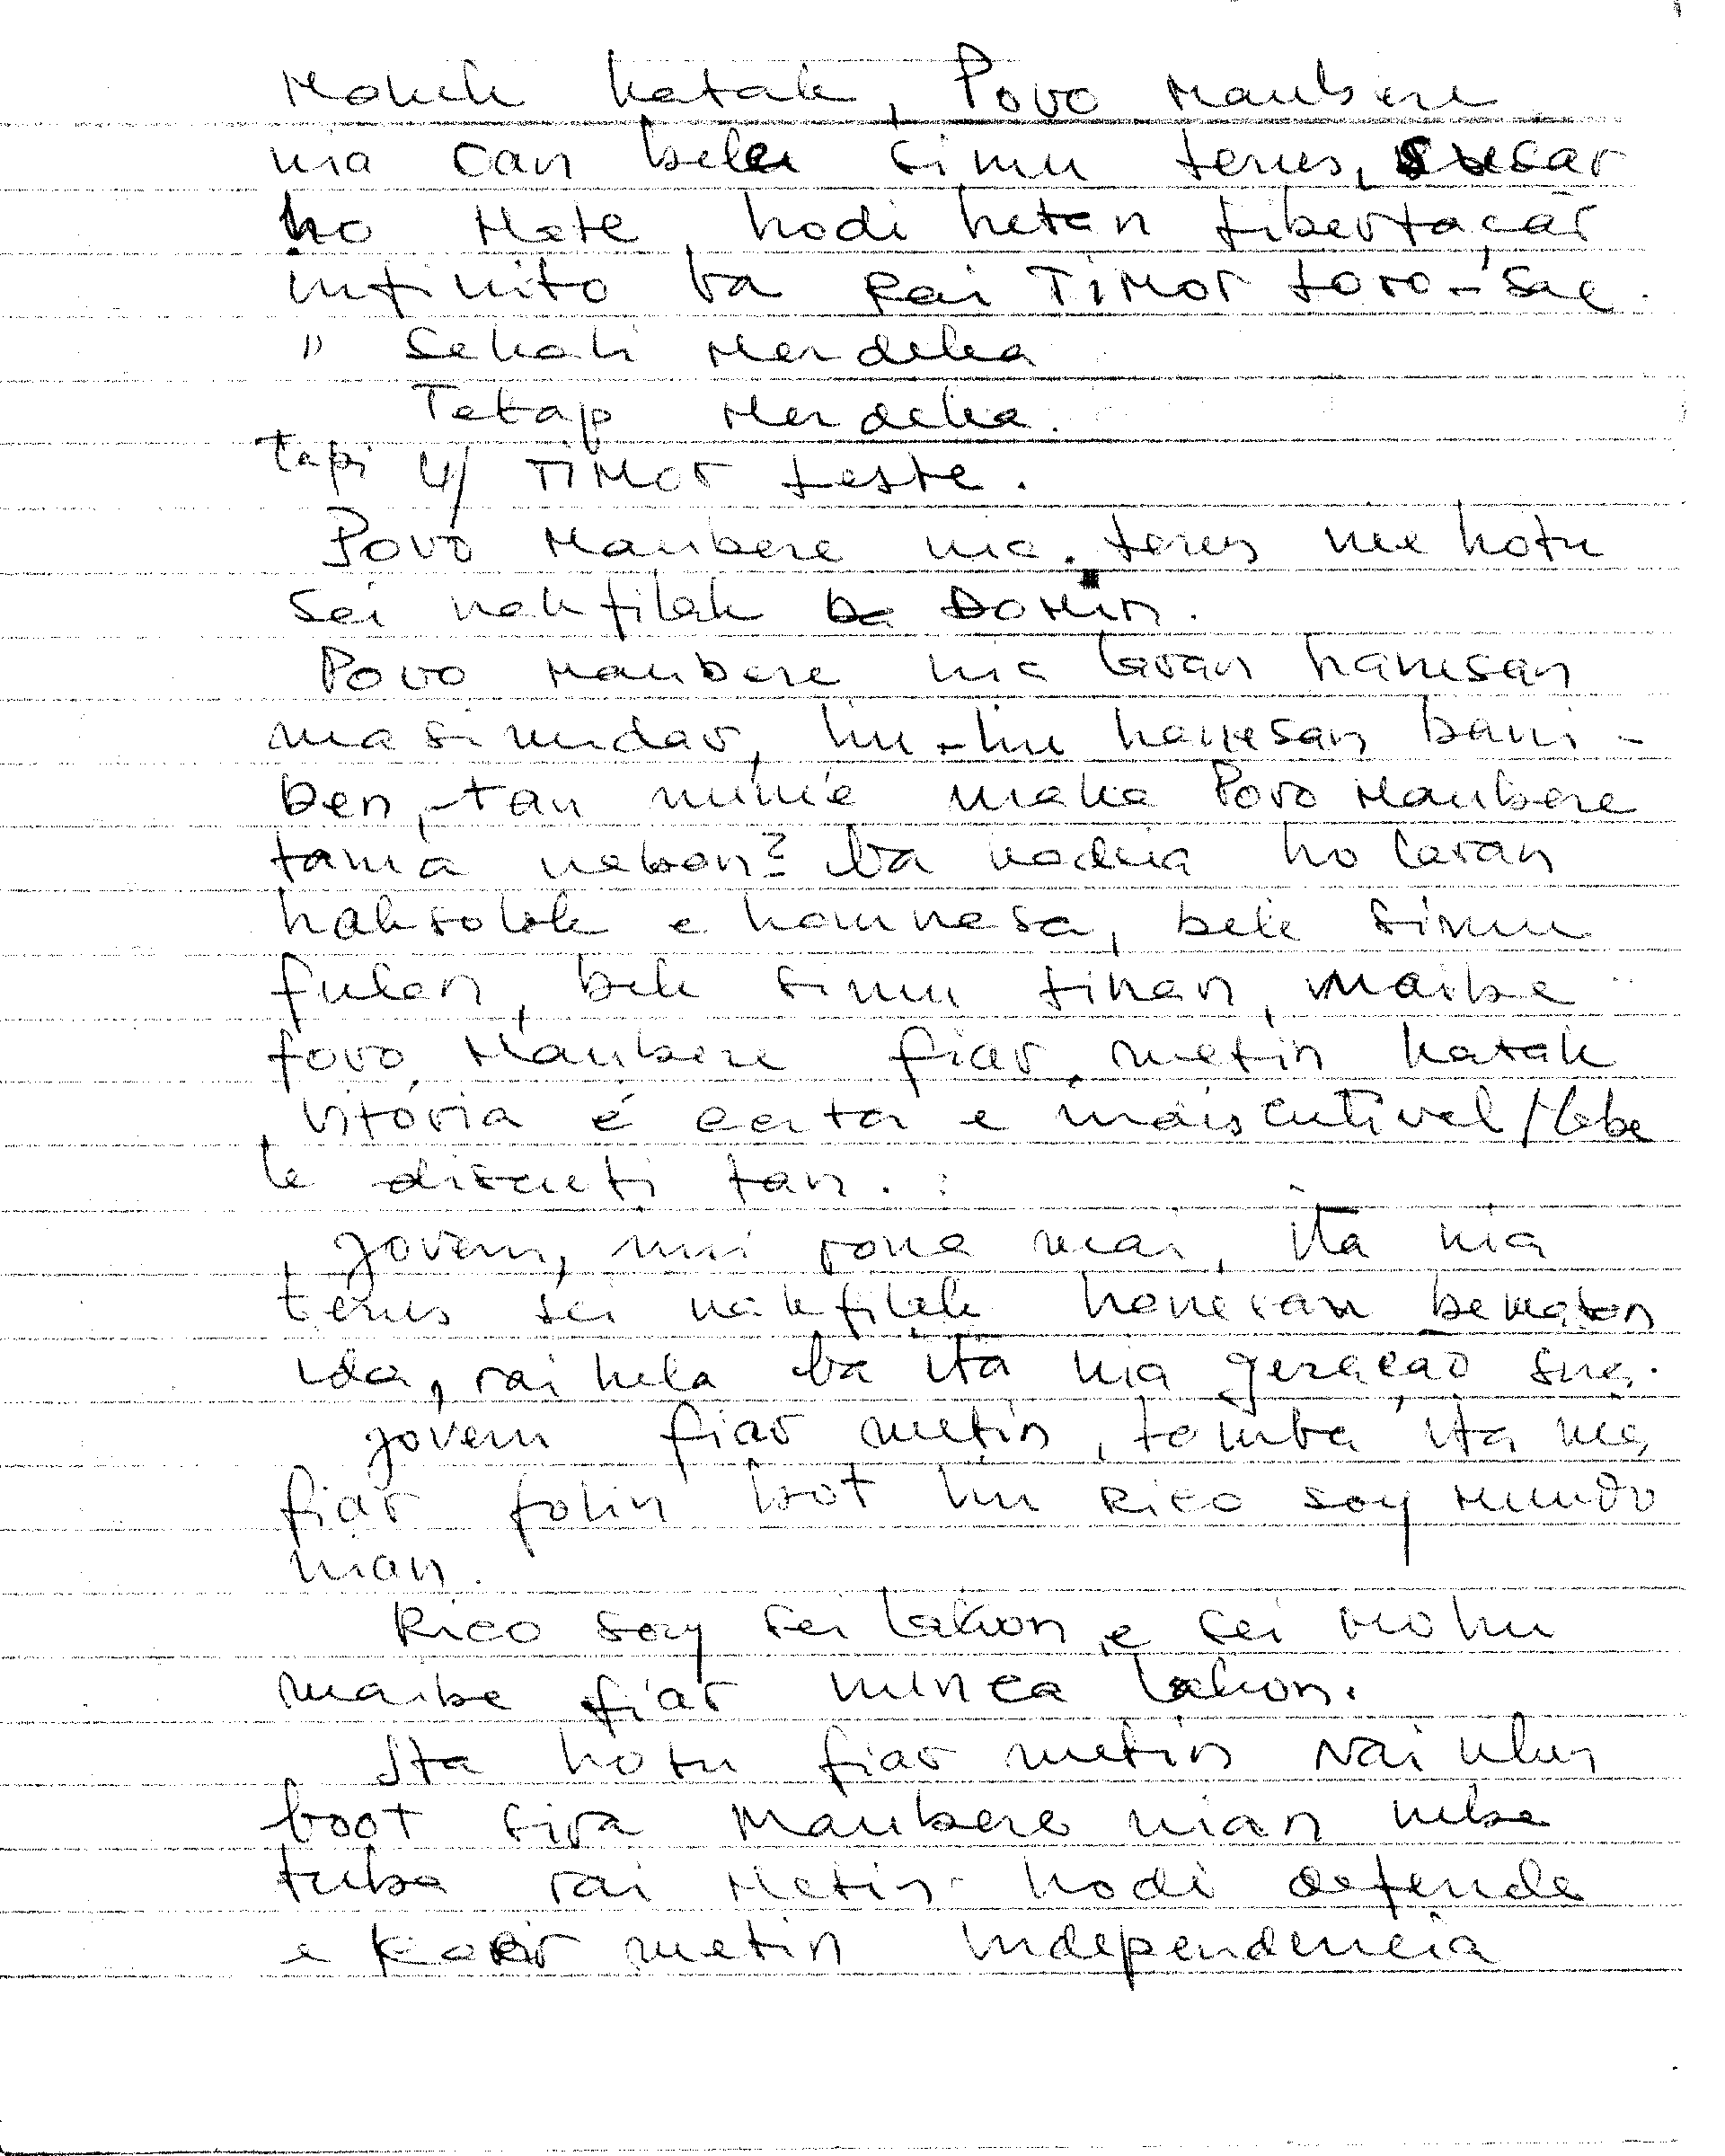 Katak, Povo Maubere
nia oan bele simu terus, susar
ho Mate, hodi hetan libertaçãr
infinito ba Rai TiMor Loro-Sae.
" Sekali Merdeka
Tetap Merdeka.
tapi u/ TiMor Leste.
Povo Maubere nia terus ne hotu
sei nakfilak ba Domin.
Povo Maubere nia laran hanesan
masinudar, hu-hu hanesan bani-
ben, - tan nune'e maka Povo Maubere
tama nebon? ba nodia ho laran
haksolok e hamnasa, bele simu
fulan, bele simu tinan, maibe
Povo Maubere fiar metin katak
Vitória é certa e indiscutivel/Labe
le discuti tan.
Jovem, imi rona mai, ita nia
terus sei nakfilak hanesan bematan
ida, rai hela ba ita nia geração sira.
Jovem fiar metin, tomba ita nia
fiar folin bot liu Rico soy Mundo
nian.
Rico soy sei lakon e sei Mohu
maibe fiar nunca lakon.
Ita hotu fiar metin Nai ulun
boot sira Maubere nian nebe
tuba rai Metin hodi defende
e kaer metin Independencia